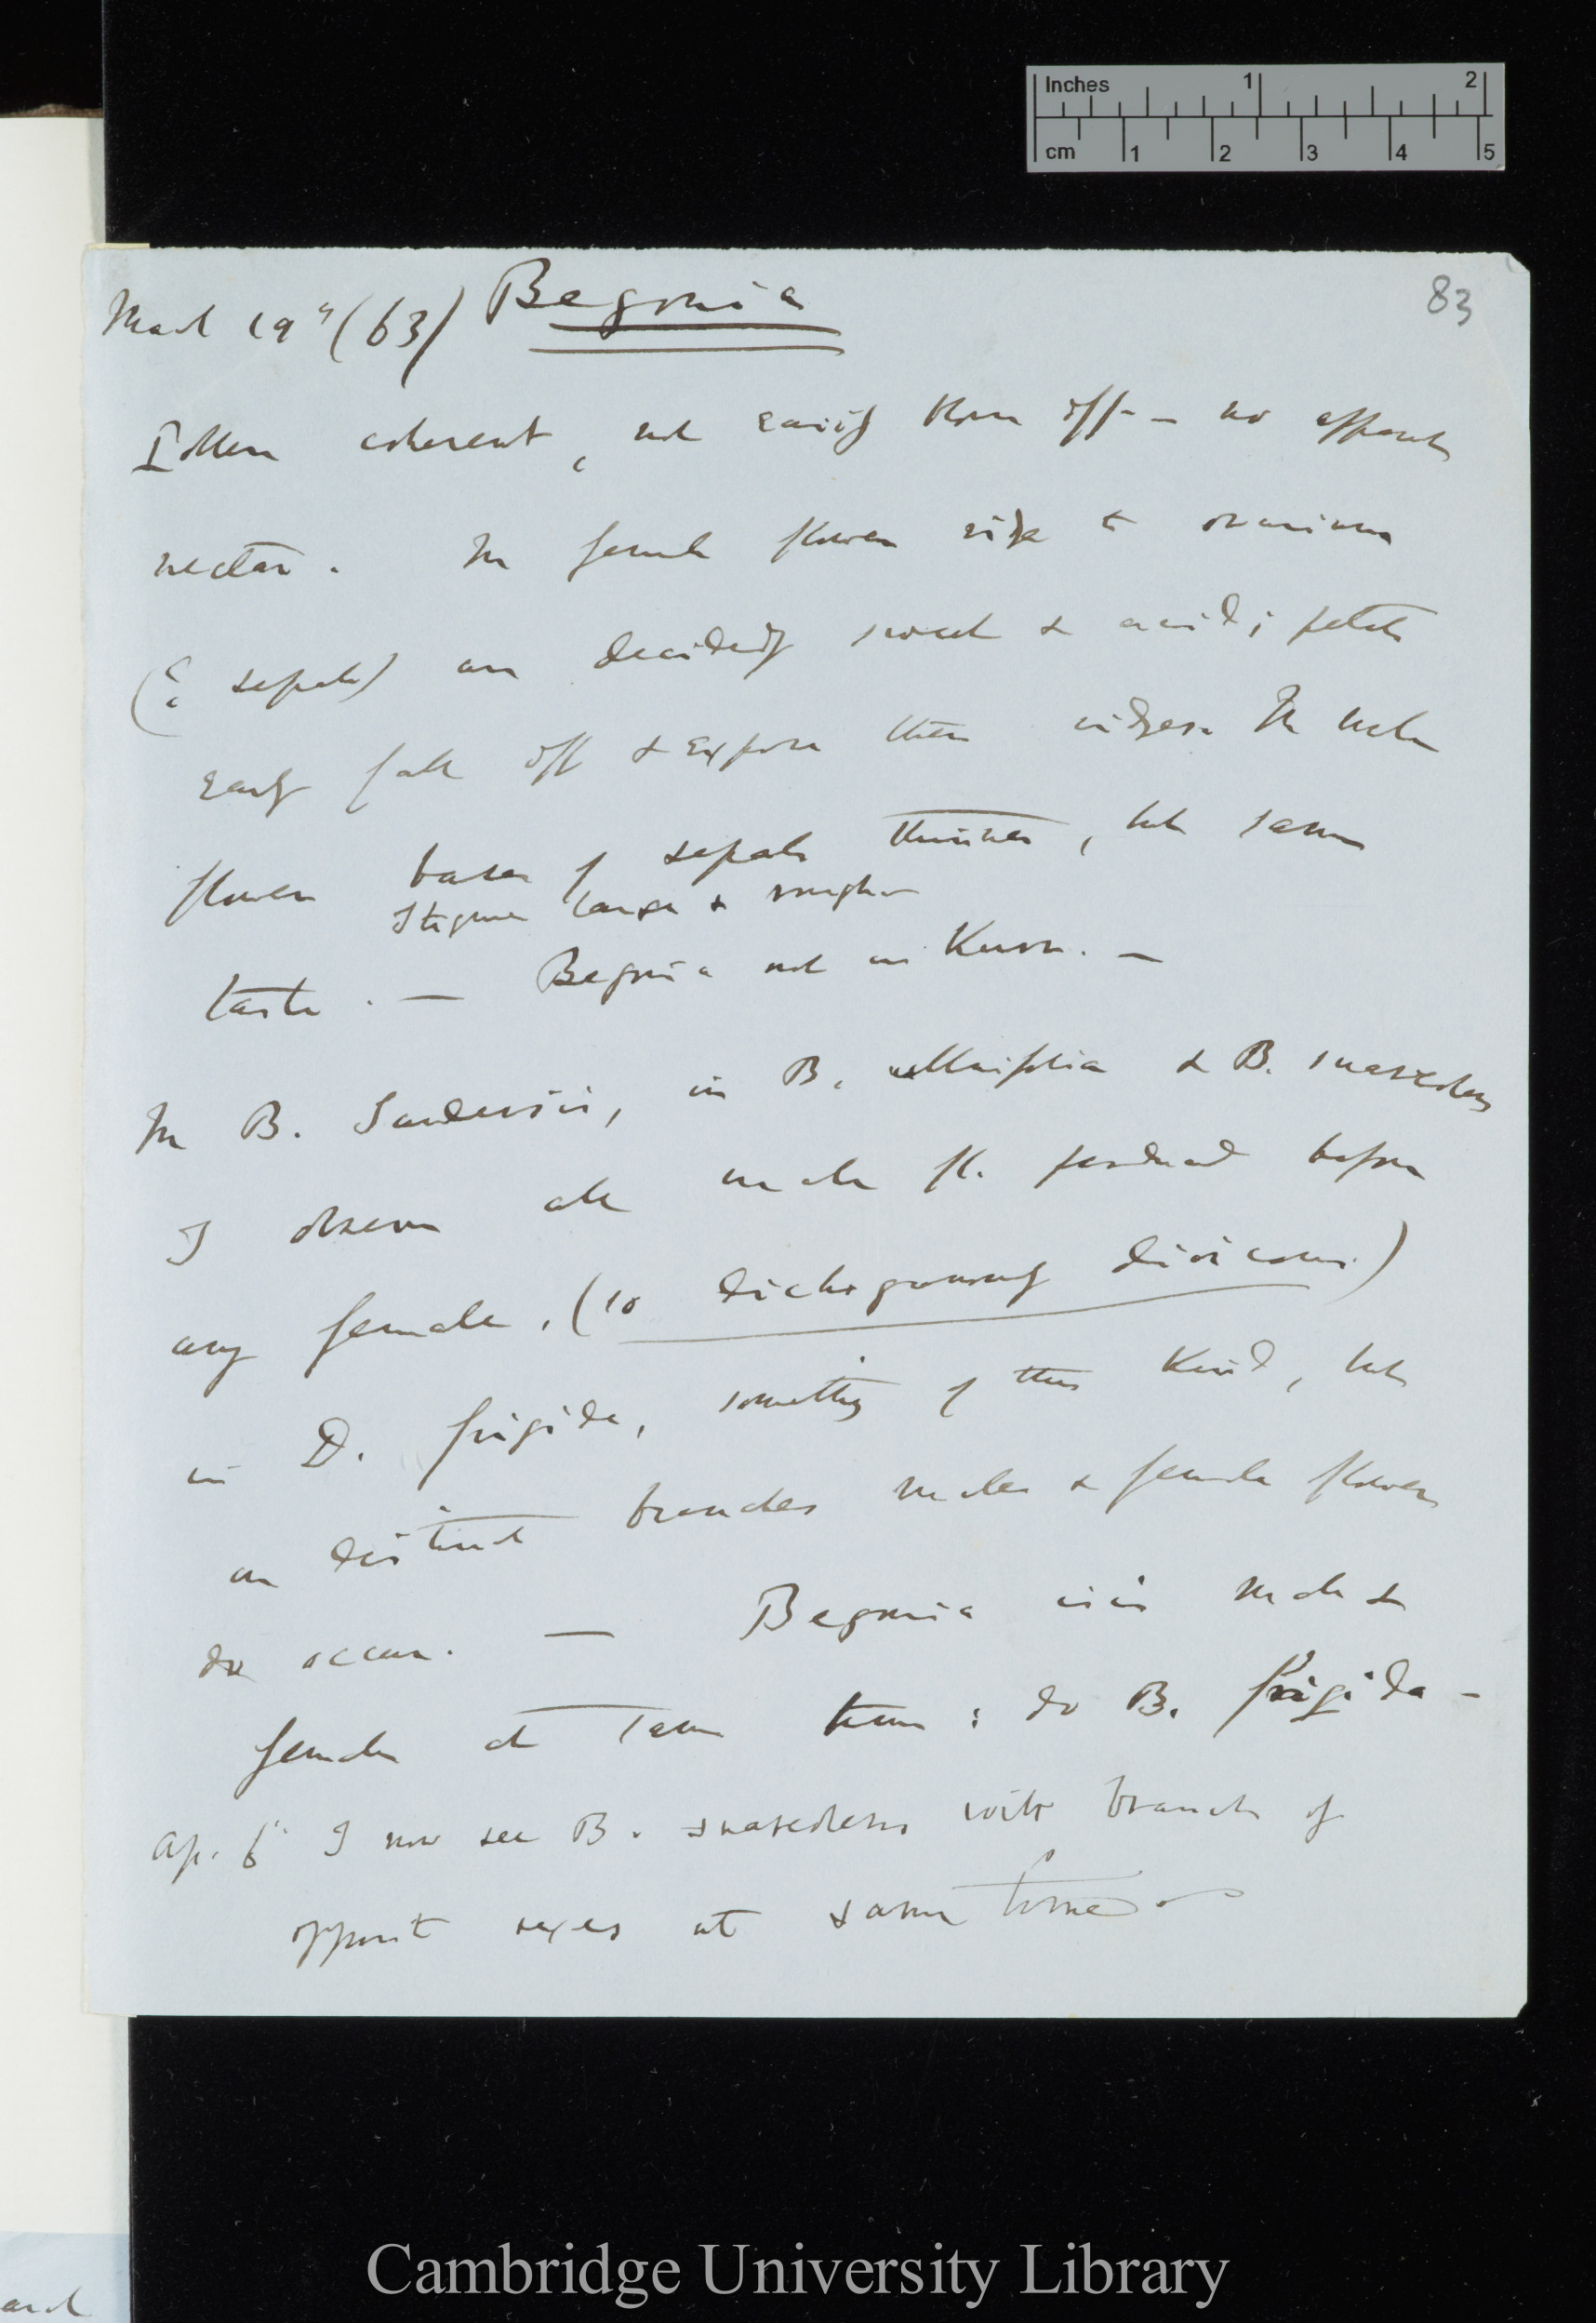 Inches 1 2
cm 1 2 3 4 5
83
March 19th (63) Begonia
Pollen coherent, not easily blown off — no apparent
nectar. In female flowers ridge to ovarium
( sepals) are decidedly sweet & acid; petals
early fall off & expose these ridges. In male
flowers bases of sepals thinner, but same
Stigma large & rough
taste. — Begonia not in Kurr. —
In B. Sandersii, in B. & B. suaveolens
I observe all male fl. produced before
any female, (so dichogamously dioicous)
in B. frigida, something of this kind, but
on distinct branches males & female flowers
do occur. — Begonia male &
female at same time: do B. frigida —
Ap. 6th I now see B. suaveolens with branch of
opposite sexes at same time
Cambridge University Library